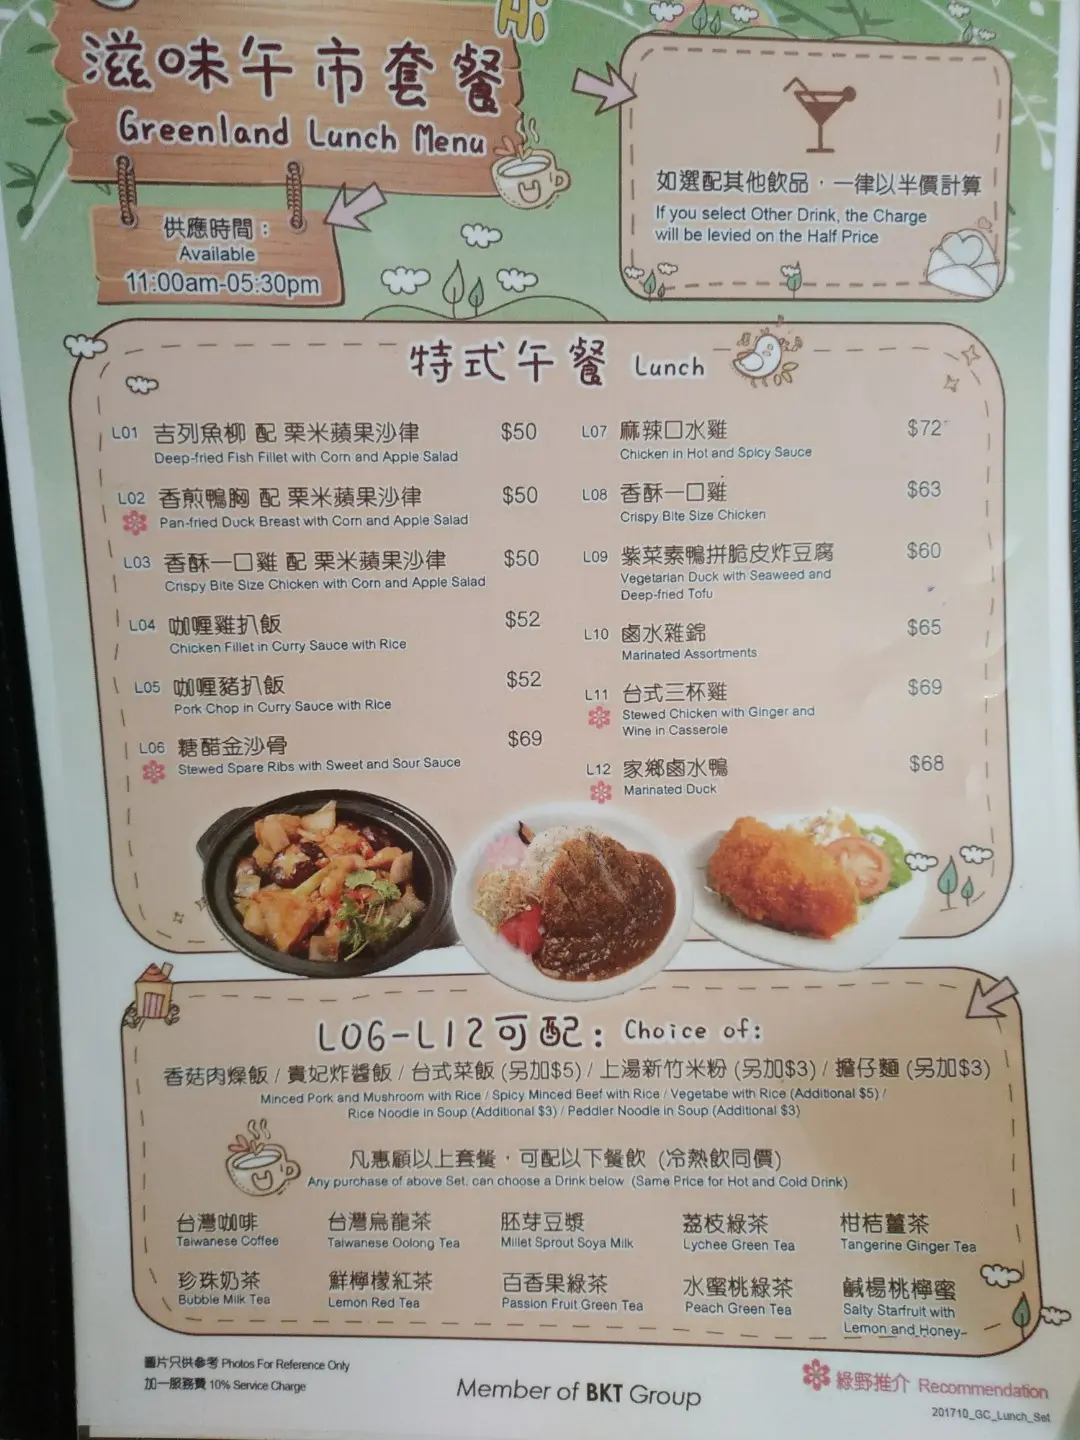 Hi
滋味午市套餐
Greenland Lunch Menu
供應時間：
Available
11:00am-05:30pm
如選配其他飲品，一律以半價計算
If you select Other Drink, the Charge
will be levied on the Half Price
特式午餐 Lunch
L01 吉列魚柳 配 粟米蘋果沙律 $50
Deep-fried Fish Fillet with Corn and Apple Salad
L02 香煎鴨胸 配 粟米蘋果沙律 $50
Pan-fried Duck Breast with Corn and Apple Salad
L03 香酥一口雞 配 粟米蘋果沙律 $50
Crispy Bite Size Chicken with Corn and Apple Salad
L04 咖喱雞扒飯 $52
Chicken Fillet in Curry Sauce with Rice
L05 咖喱豬扒飯 $52
Pork Chop in Curry Sauce with Rice
L06 糖醋金沙骨 $69
Stewed Spare Ribs with Sweet and Sour Sauce
L07 麻辣口水雞 $72
Chicken in Hot and Spicy Sauce
L08 香酥一口雞 $63
Crispy Bite Size Chicken
L09 紫菜素鴨拼脆皮炸豆腐 $60
Vegetarian Duck with Seaweed and
Deep-fried Tofu
L10 鹵水雜錦 $65
Marinated Assortments
L11 台式三杯雞 $69
Stewed Chicken with Ginger and
Wine in Casserole
L12 家鄉鹵水鴨 $68
Marinated Duck
L06-L12可配: Choice of:
香菇肉燥飯 / 貴妃炸醬飯 / 台式菜飯 (另加$5) / 上湯新竹米粉 (另加$3) / 擔仔麵 (另加$3)
Minced Pork and Mushroom with Rice / Spicy Minced Beef with Rice / Vegetabe with Rice (Additional $5) /
Rice Noodle in Soup (Additional $3) / Peddler Noodle in Soup (Additional $3)
凡惠顧以上套餐，可配以下餐飲 (冷熱飲同價)
Any purchase of above Set, can choose a Drink below (Same Price for Hot and Cold Drink)
台灣咖啡 台灣烏龍茶 胚芽豆漿 荔枝綠茶 柑桔薑茶
Taiwanese Coffee Taiwanese Oolong Tea Millet Sprout Soya Milk Lychee Green Tea Tangerine Ginger Tea
珍珠奶茶 鮮檸檬紅茶 百香果綠茶 水蜜桃綠茶 鹹楊桃檸蜜
Bubble Milk Tea Lemon Red Tea Passion Fruit Green Tea Peach Green Tea Salty Starfruit with
Lemon and Honey
圖片只供參考 Photos For Reference Only
加一服務費 10% Service Charge
Member of BKT Group
綠野推介 Recommendation
201710_GC_Lunch_Set